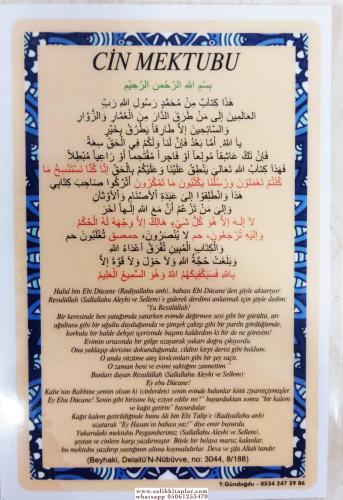 CİN MEKTUBU
بِسْمِ اللهِ الرَّحْمنِ الرَّحِيْمِ
هٰذَا كِتَابٌ مِنْ مُحَمَّدٍ رَسُولِ اللهِ رَبِّ
العالَمِينَ إِلَى مَنْ طَرَقَ الدَّارَ مِنَ العُمَّارِ وَالزُّوَّارِ
وَالسَّائِحِينَ إِلَّا طَارِقاً يَطْرُقُ بِخَيْرٍ
يا اللهُ. أَمَّا بَعْدُ فَإِنَّ لَنَا وَلَكُمْ فِي الْحَقِّ سِعَةً
فَإِنْ تَكُ عَاشِقاً مُولَعاً أَوْ فَاجِراً مُقْتَحِماً أَوْ رَاعِياً مُبْطِلاً
فَهٰذَا كِتَابُ اللهِ تَعَالَى يَنْطِقُ عَلَيْنَا وَعَلَيْكُمْ بِالْحَقِّ إِنَّا كُنَّا نَسْتَنْسِخُ مَا
كُنْتُمْ تَعْمَلُونَ وَرُسُلُنَا يَكْتُبُونَ مَا تَمْكُرُونَ أُتْرُكُوا صَاحِبَ كِتَابِي
هٰذَا وَانْطَلِقُوا إِلَى عَبَدَةِ الْأَصْنَامِ وَالْأَوْثَانِ
وَإِلَى مَنْ تَزْعُمُ أَنَّ مَعَ اللهِ إِلٰهاً آخَرَ
لَا إِلٰهَ إِلَّا هُوَ كُلُّ شَيْءٍ هَالِكٌ إِلَّا وَجْهَهُ لَهُ الْحُكْمُ
وَإِلَيْهِ تُرْجَعُونَ، حم لَا يُنْصَرُونَ، حمعسق تُغْلَبُونَ حم
وَالْكِتَابِ الْمُبِينِ تُفَرِّقَ أَعْدَاءُ اللهِ
وَبَلَغَتْ حُجَّةُ اللهِ وَلَا حَوْلَ وَلَا قُوَّةَ إِلَّا
بِاللهِ فَسَيَكْفِيكَهُمُ اللهُ وَهُوَ السَّمِيعُ الْعَلِيمُ
Halid bin Ebi Dücane (Radiyallahu anh), babası Ebi Dücane'den şöyle aktarıyor:
Resulüllah (Sallallahu Aleyhi ve Sellem)'e giderek derdimi anlatmak için şöyle dedim:
"Ya Resulüllah!
Bir keresinde ben yatağımda yatarken evimde değirmen sesi gibi bir gürültü, arı
uğultusu gibi bir uğultu duyduğumda ve şimşek çakışı gibi bir parıltı gördüğümde,
korkulu bir halde dehşet içerisinde başımı kaldırdım ki bir de ne göreyim!
Evimin ortasında bir gölge uzayarak yukarı doğru çıkıyordu.
Ona yaklaşıp derisine dokunduğumda, cildini kirpi derisi gibi buldum.
O anda yüzüme ateş kıvılcımları gibi bir şer saçtı.
O zaman beni ve evimi yaktığını zannettim."
Bunları duyan Resulüllah (Sallallahu Aleyhi ve Sellem):
Ey ebu Dücane!
Kabe'nin Rabbine yemin olsun ki (cinlerden) senin evinde bulunlar kötü ziyaretçiymişler.
Ey Ebu Dücane! Senin gibi birisine hiç eziyet edilir mi?" buyurduktan sonra "bir kalem
ve kağıt getirin" buyurdular
Kağıt kalem getirildiğinde bunu Ali bin Ebi Talip'e (Radiyallahu anh)
uzatarak "Ey Hasan'ın babası yaz!" diye emir buyurdu.
Yukarıdaki mektubu Peygamberimiz (Sallallahu Aleyhi ve Sellem),
şeytan ve cinlere karşı yazdırmıştır. Böyle bir belaya maruz kalanlar,
bu mektubu yazdırıp yastığının altına koymalıdırlar. Deva ve şifa Allah'tandır.
(Beyhaki, Delailü'N-Nübüvve, no: 3044, 8/188)
Y.Gündoğdu - 0534 247 29 86
www.salihkitaplar.com
whatsapp 05061253470